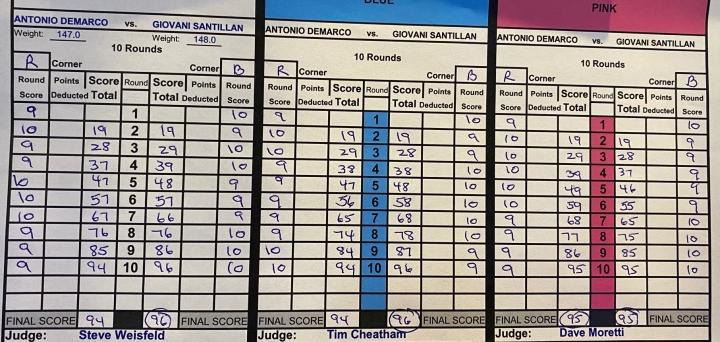 ANTONIO DEMARCO vs. GIOVANI SANTILLAN
Weight: 147.0 Weight: 148.0
10 Rounds
R Corner Corner B
Round Points Score Round Score Points Round
Score Deducted Total Total Deducted Score
9 1 10
10 19 2 19 9
9 28 3 29 10
9 37 4 39 10
10 47 5 48 9
10 57 6 57 9
10 67 7 66 9
9 76 8 76 10
9 85 9 86 10
9 94 10 96 10
FINAL SCORE 94 96 FINAL SCORE
Judge: Steve Weisfeld
BLUE
ANTONIO DEMARCO vs. GIOVANI SANTILLAN
10 Rounds
R Corner Corner B
Round Points Score Round Score Points Round
Score Deducted Total Total Deducted Score
9 1 10
10 19 2 19 9
10 29 3 28 9
9 38 4 38 10
9 47 5 48 10
9 56 6 58 10
9 65 7 68 10
9 74 8 78 10
10 84 9 87 9
10 94 10 96 9
FINAL SCORE 94 96 FINAL SCORE
Judge: Tim Cheatham
PINK
ANTONIO DEMARCO vs. GIOVANI SANTILLAN
10 Rounds
R Corner Corner B
Round Points Score Round Score Points Round
Score Deducted Total Total Deducted Score
9 1 10
10 19 2 19 9
10 29 3 28 9
10 39 4 37 9
10 49 5 46 9
10 59 6 55 9
9 68 7 65 10
9 77 8 75 10
9 86 9 85 10
9 95 10 95 10
FINAL SCORE 95 95 FINAL SCORE
Judge: Dave Moretti